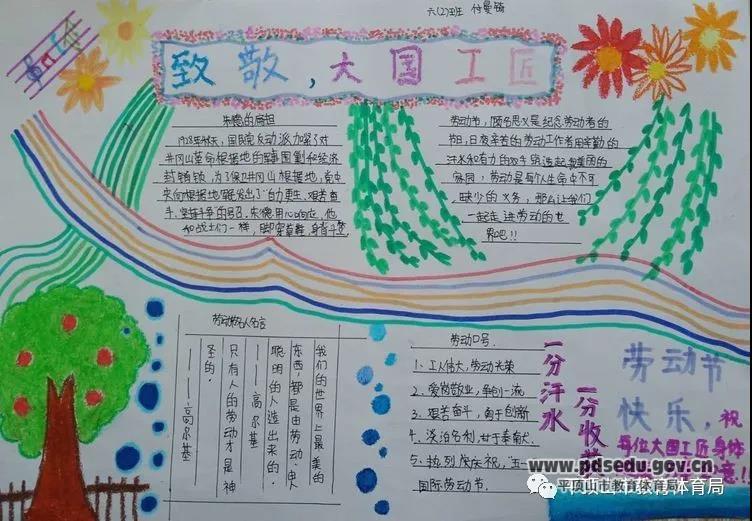 六(2)班
致敬,大国工匠
朱德的扁担
1928年秋天,国民党反动派加紧了对
井冈山革命根据地的军事围剿和经济
封锁,为了保卫井冈山根据地,党中
央向根据地军民发出了“自力更生、艰苦奋
斗、坚持斗争的号召。朱德
和战士们一样,脚穿草鞋,身背斗笠
劳动节,顾名思义是纪念劳动者的
节日,日夜辛苦的劳动工作者用辛勤的
汗水和有力的双手铸造起美丽的
家园,劳动是每个人生命中不可
缺少的义务,那么让我们
一起走进劳动的世
界吧!!
劳动名人名言
我们的世界上最美的
东西,都是由劳动、由人
聪明的人造出来的。
——高尔基
只有人的劳动才是神
圣的。
——高尔基
劳动口号
1、工人伟大,劳动光荣
2、爱岗敬业,争创一流
3、艰苦奋斗,勇于创新
4、淡泊名利,甘于奉献。
5、热烈庆祝,“五一”
国际劳动节。
一分汗水
一分收获
劳动节
快乐,祝
每位大国工匠身体
www.pdsedu.gov.cn
平顶山市教育体育局
平顶山市教育体育局